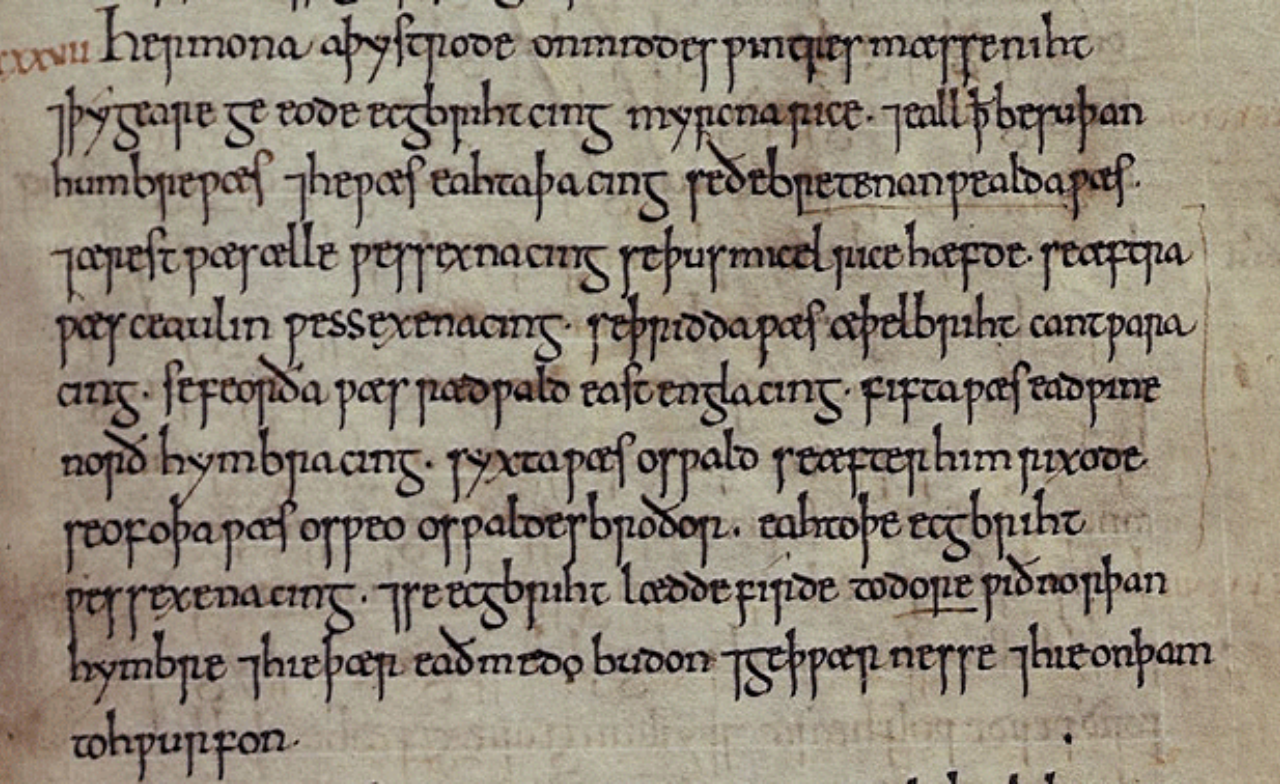 cxxvii Her mona aþystrode on middes pintres mæsseniht
⁊ þy geare ge eode ecgbriht cing myrcna rice. ⁊ eall ꝥ be suþan
humbre ƿæs ⁊ he ƿæs eahtaþa cing se ðe bretenanƿealda ƿæs.
⁊ ærest ƿæs ælle ƿessexna cing se þus micel rice hæfde. se æftra
ƿæs ceaulin ƿessexena cing. se þridda ƿæs æþelbriht cantƿara
cing. se feorða ƿæs rædƿald east engla cing. fifta ƿæs eadƿine
norð hymbra cing. syxta ƿæs osƿald se æfter him rixode
seofoþa ƿæs osƿeo osƿaldes broðor. eahtoþe ecgbriht
ƿessexena cing. ⁊ se ecgbriht lædde firde to dore ƿið norþan
hymbre ⁊ hie þær eaðmedo budon ⁊ geþƿærnesse ⁊ hie on þam
tohƿurfon.